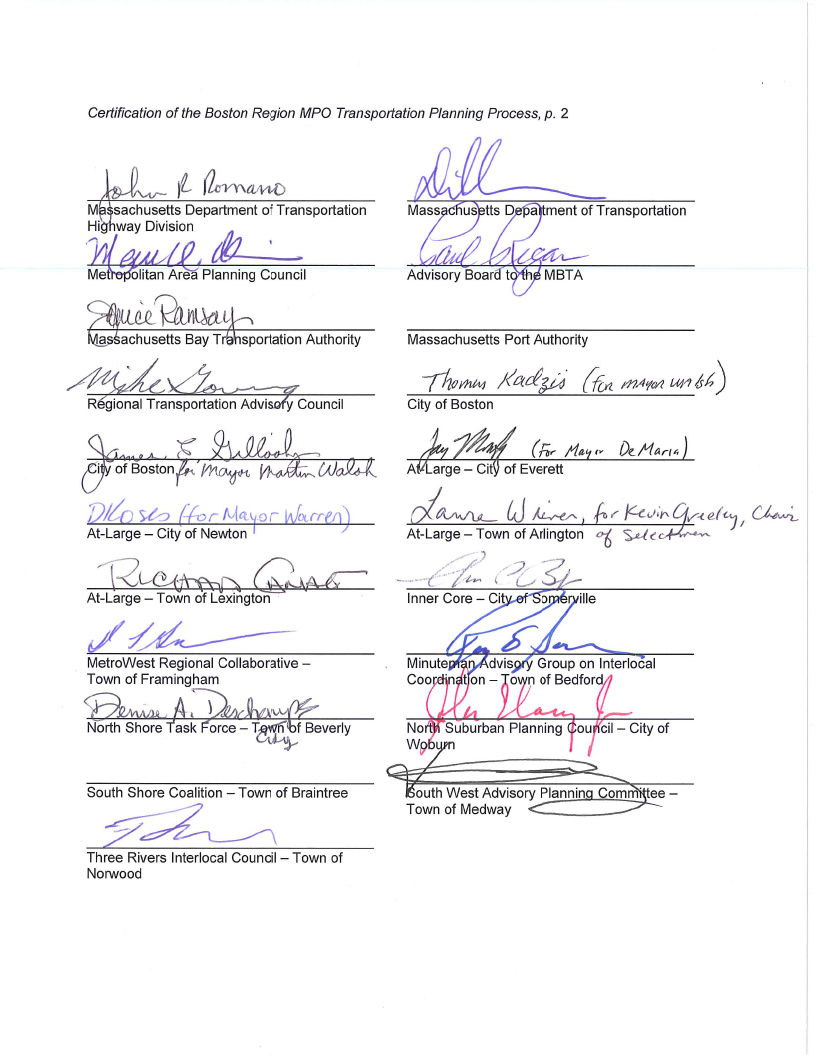 Certification of the Boston Region MPO Transportation Planning Process, p. 2
John R Romano
Massachusetts Department of Transportation
Highway Division
Massachusetts Department of Transportation
Metropolitan Area Planning Council
Paul Regan
Advisory Board to the MBTA
Janice Ramsay
Massachusetts Bay Transportation Authority
Massachusetts Port Authority
Mike Gowing
Regional Transportation Advisory Council
Thomas Kadzis (for mayor
City of Boston
James E. Gillooly
City of Boston for Mayor Martin Walsh
Jay (For Mayor DeMaria)
At-Large – City of Everett
DKoses (for Mayor Warren)
At-Large – City of Newton
Laura Wiener, for Kevin Greeley, Chair
At-Large – Town of Arlington of Selectmen
Richard Canale
At-Large – Town of Lexington
Inner Core – City of Somerville
MetroWest Regional Collaborative –
Town of Framingham
Minuteman Advisory Group on Interlocal
Coordination – Town of Bedford
Denise A. Deschamps
North Shore Task Force – Town of Beverly
City
North Suburban Planning Council – City of
Woburn
South Shore Coalition – Town of Braintree
South West Advisory Planning Committee –
Town of Medway
Three Rivers Interlocal Council – Town of
Norwood